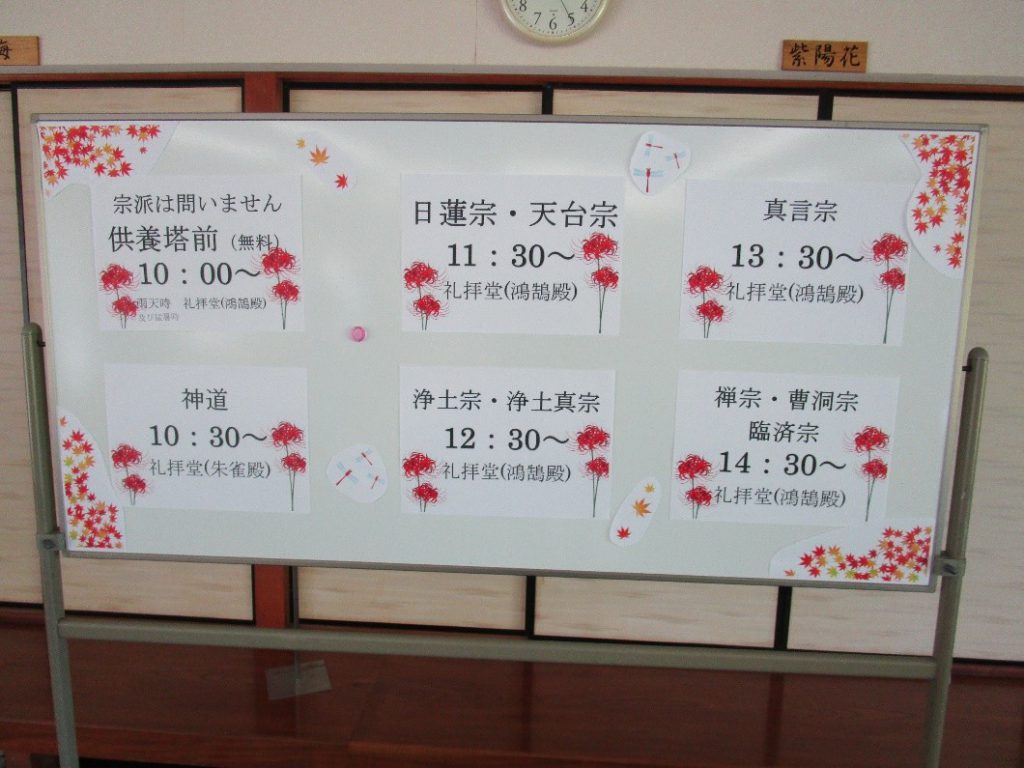 8 7 6 5 4
海
紫陽花
宗派は問いません
供養塔前（無料）
10：00～
雨天時　礼拝堂(鴻鵠殿)
及び猛暑時
日蓮宗・天台宗
11：30～
礼拝堂(鴻鵠殿)
真言宗
13：30～
礼拝堂(鴻鵠殿)
神道
10：30～
礼拝堂(朱雀殿)
浄土宗・浄土真宗
12：30～
礼拝堂(鴻鵠殿)
禅宗・曹洞宗
臨済宗
14：30～
礼拝堂(鴻鵠殿)